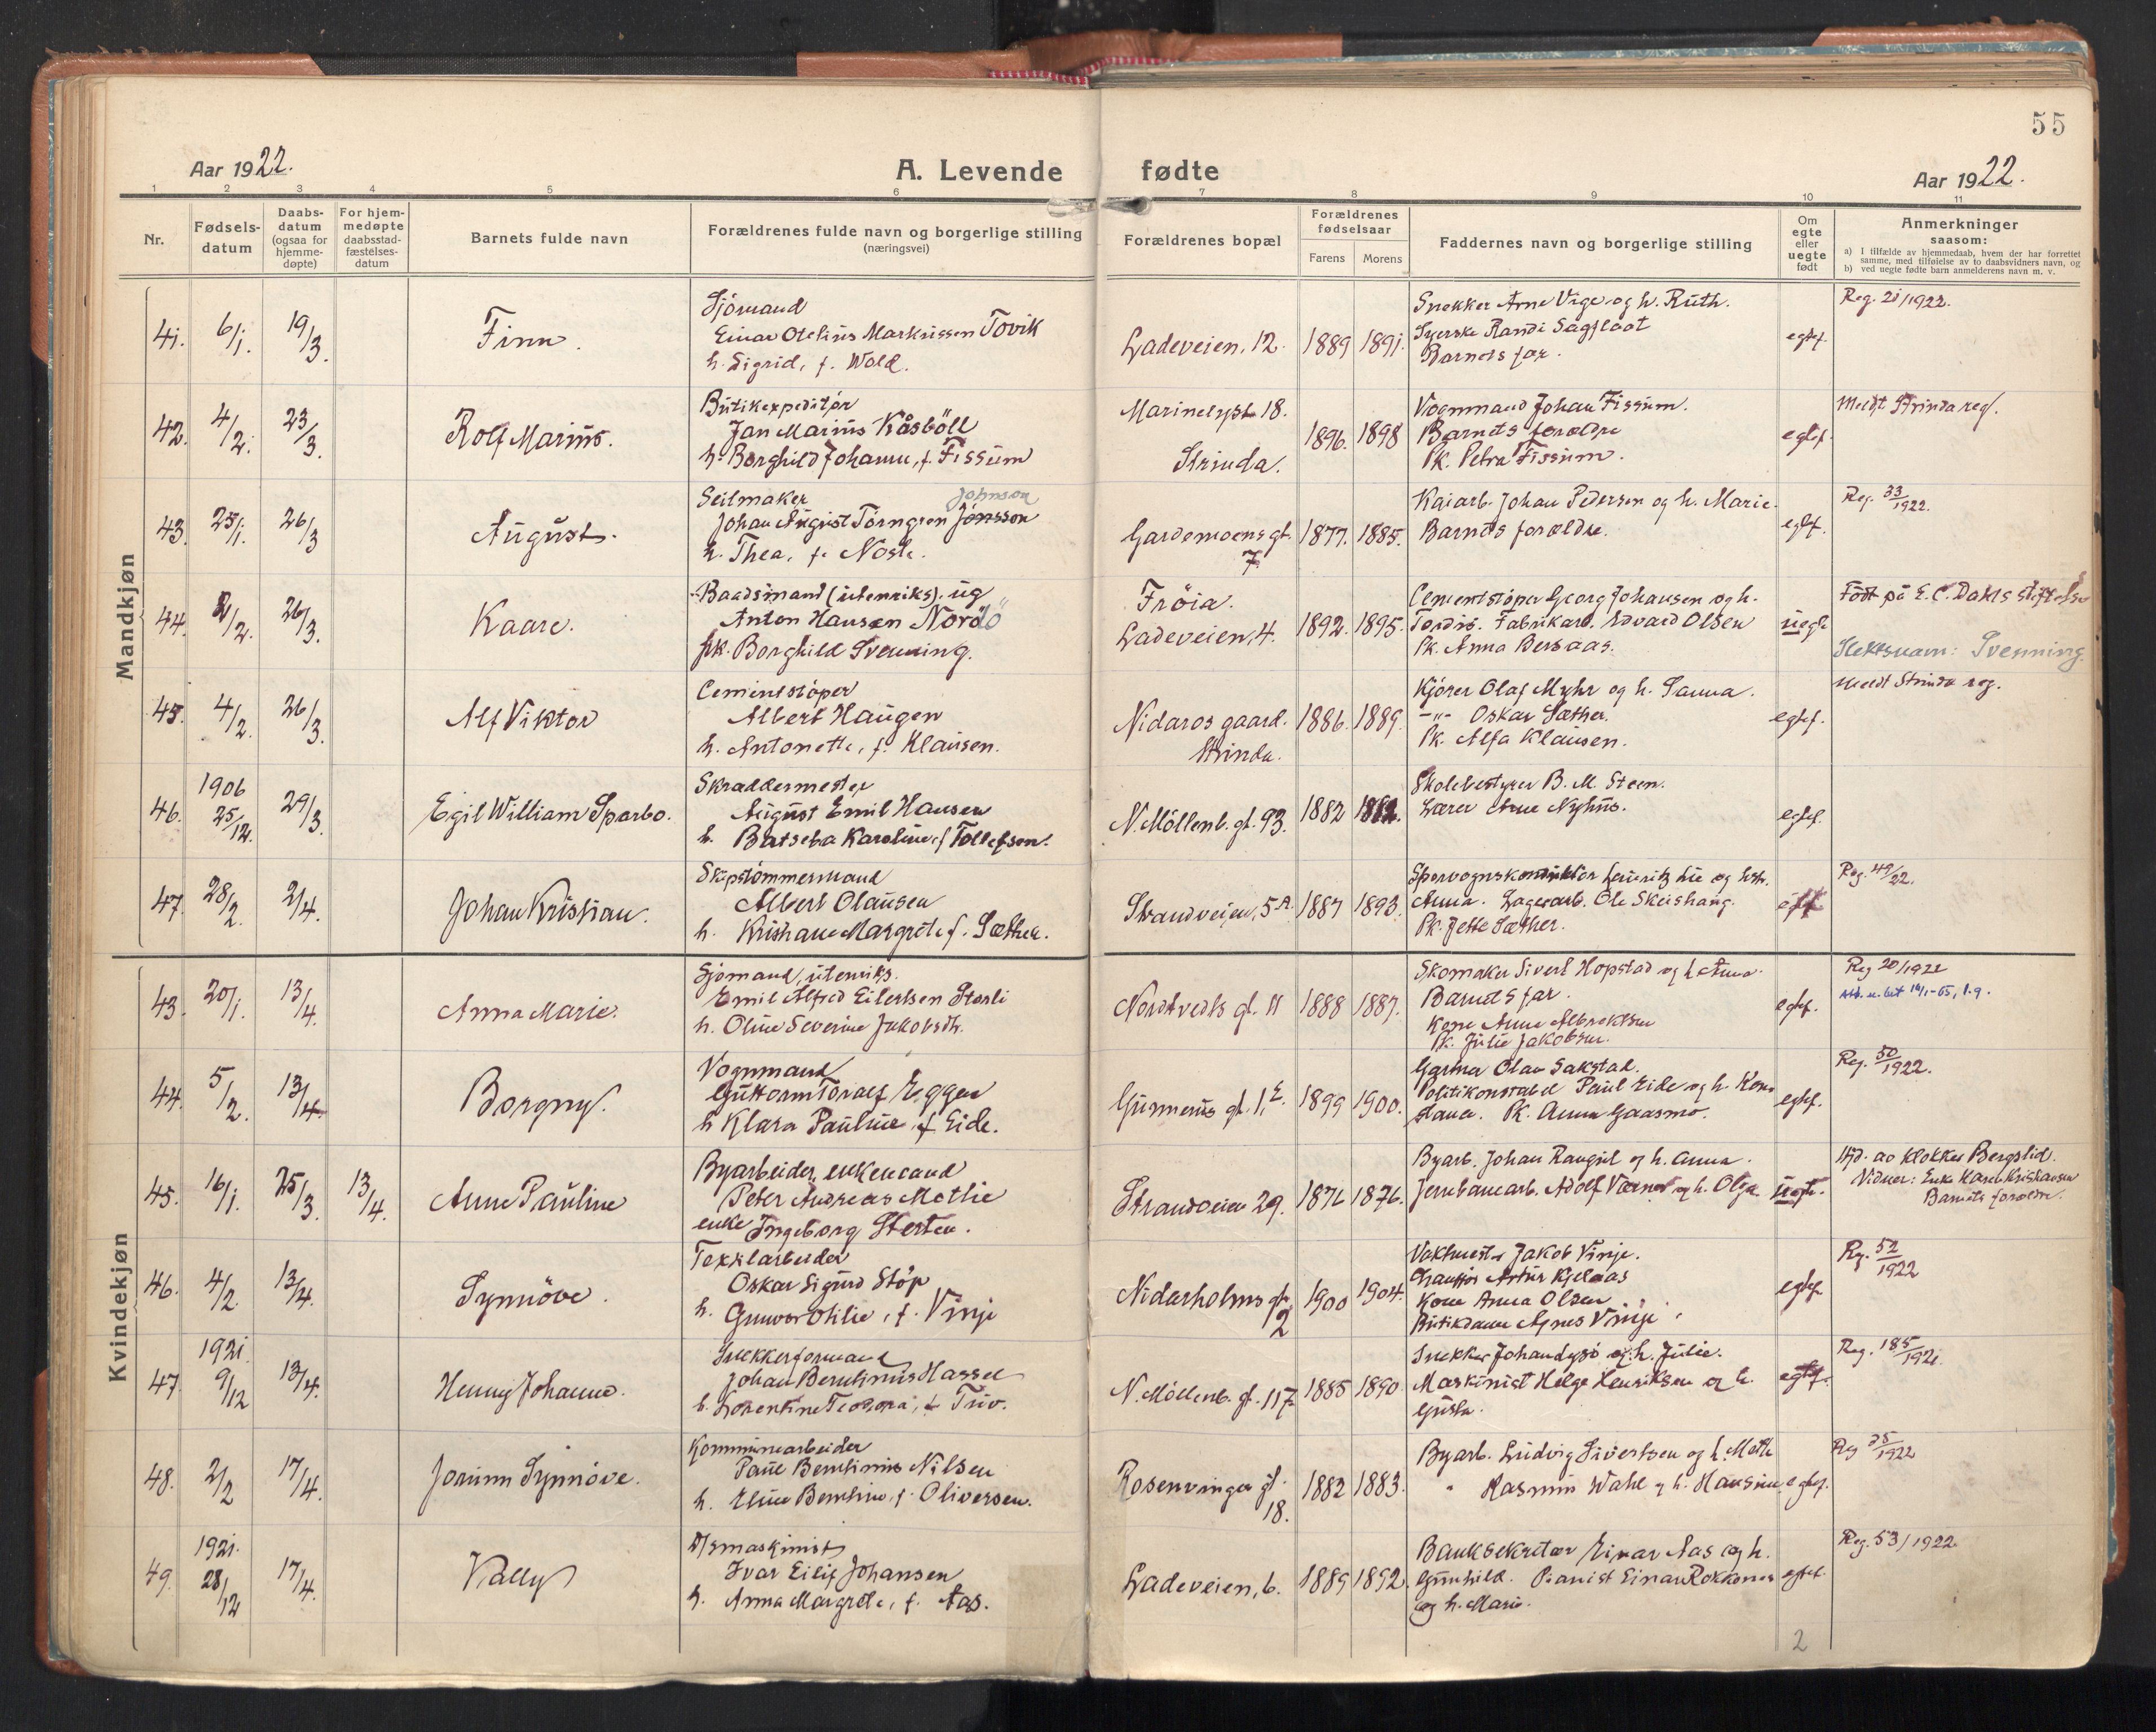 55
Aar 1922.
A. Levende fødte
Aar 1922.
1 2 3 4 5 6 7 8 9 10 11
Nr.
Fødsels-
datum
Daabs-
datum
(ogsaa for
hjemme-
døpte)
For hjem-
medøpte
daabsstad-
fæstelses-
datum
Barnets fulde navn
Forældrenes fulde navn og borgerlige stilling
(næringsvei)
Forældrenes bopæl
Forældrenes
fødselsaar
Farens Morens
Faddernes navn og borgerlige stilling
Om
egte
eller
uegte
født
Anmerkninger
saasom:
a) I tilfælde av hjemmedaab, hvem der har forrettet
samme, med tilføielse av to daabsvidners navn, og
b) ved uegte fødte barn anmelderens navn m. v.
Mandkjøn
41. 6/1. 19/3. Finn.
Sjömand
Einar Otelius Markussen Tovik
h. Sigrid, f. Wold.
Ladeveien, 12. 1889 1891.
Snekker Arne Vige og h. Ruth.
Syerske Randi Sagfloot
Barnets far.
egtef.
Reg. 21/1922.
42. 4/2. 23/3. Rolf Marius.
Butikexpeditör
Jan Marius Kåsböll
h. Borghild Johanne, f. Fissum
Marinelyst 18.
Strinda.
1896. 1898
Vognmand Johan Fissum.
Barnets forældre
Pk. Petra Fissum.
egtef.
Meldt Strinda reg.
43. 25/1. 26/3 August.
Seilmaker
Johnson
Johan August Törngren Jönsson
h. Thea, f. Nosk.
Gardemoens gt.
7.
1877. 1885.
Kaiarb. Johan Pedersen og h. Marie.
Barnets forældre.
egtf.
Reg. 33/1922.
44. 2/2. 26/3. Kaare.
Baadsmand (utenriks). ug
Anton Hansen Nordö
pk. Borghild Svenning.
Fröia.
Ladeveien, 4.
1892. 1895.
Cementstöper Georg Johansen og h.
Tordis. Fabrikarb. Edvard Olsen
Pk. Anna Bersaas.
uegte
Födt på E. C. Dahls stiftelse
Slektsnavn: Svenning.
45. 4/2. 26/3. Alf Viktor
Cementstöper
Albert Haugen
h. Antonette, f. Klausen.
Nidaros gaard.
Strinda.
1886. 1889.
Kjörer Olaf Myhr og h. Sanna.
-"- Oskar Sæther.
Pk. Alfa Klausen.
egtef.
Meldt Strinda reg.
46. 1906 25/12. 29/3. Egil William Sparbo.
Skræddermester
August Emil Hansen
h. Batseba Karoline, f. Tollefsen.
N. Möllenb. gt. 93. 1882 1882.
Skolebestyrer B. M. Steen.
Lærer Arne Nyhus.
egtef.
47. 28/2. 2/4. Johan Kristian.
Skipstömmermand
Albert Olausen
h. Kristiane Margrete f. Sæther.
Strandveien, 5A. 1887 1893.
Sporvognskonduktör Lauritz Lie og hstr.
Anna. Lagerarb. Ole Skeishaug.
Pk. Jette Sæther.
egtf
Reg. 49/22.
Kvindekjøn
43. 20/1. 13/4. Anna Marie.
Sjömand, utenriks.
Emil Alfred Eilertsen Storli
h. Oline Severine Jakobsdtr.
Nordtvedts gt. 11 1888 1887.
Skomaker Sivert Hopstad og h Anna.
Barnets far.
Kone Anne Albrektsen
Pk. Julie Jakobsen.
egtef.
Reg 20/1922
44. 5/2. 13/4. Borgny.
Vognmand
Guttorm Toralf Eggen
h Klara Pauline, f Eide.
Gunnerus gt. 1, E. 1899 1900.
Garma Olav Sakstad.
Politikonstabel Paul Eide og h. Kon-
stance. Pk. Anna Gaasmo.
egtef.
Reg. 50/1922.
45. 16/1. 25/3. 13/4. Anne Pauline
Byarbeider, enkemand
Peter Andreas Mothie
enke Ingeborg Sterten.
Strandveien 29. 1876.
Byarb. Johan Rangul og h. Anna.
Jernbanearb. Adolf Værnes og h. Olga.
uegte.
Hjd. av klokker Bergslid.
Vidner: Enke Karen Kristiansen
Barnets forældre.
46. 4/2. 13/4. Synnöve.
Textilarbeider
Oskar Sigurd Stöp
h. Gunvor Otilie, f. Vinje
Nidarholms gt.
12
1900 1904.
Vaktmester Jakob Vinje.
Chaufför Artur Kjelaas
Kone Anna Olsen
Butikdame Agnes Vinje.
egtef
Reg. 52/1922
47. 1921. 9/12 13/4. Henny Johanne.
Snekkerformand
Johan Bernhinus Hassel
h. Lorentine Teodora, f. Triv.
N. Möllenb. gt. 117. 1885 1890
Snekker Johan Lysö og h. Julie.
Maskinist Helge Henriksen og h.
Gusta.
egtef.
Reg. 185/1921.
48. 2/2 17/4. Jorunn Synnöve.
Kommunearbeider
Paul Bernhinus Nilsen
h. Eline Bernhine, f. Oliversen.
Rosenvinges gt.
18.
1882 1883.
Byarb. Ludvig Sivertsen og h. Meth
" Rasmus Wahl og h. Hansine
egtef.
Reg 35/1922
49. 1921. 28/12 17/4. Vally
D/smaskinist
Ivar Eilif Johansen
h. Anna Margrete, f. Aas.
Ladeveien, 6. 1889 1892.
Banksekretær Einar Aas og h.
Gunhild. Pianist Einar Rokkones
og h. Marie.
egtef.
Reg. 53/1922.
2